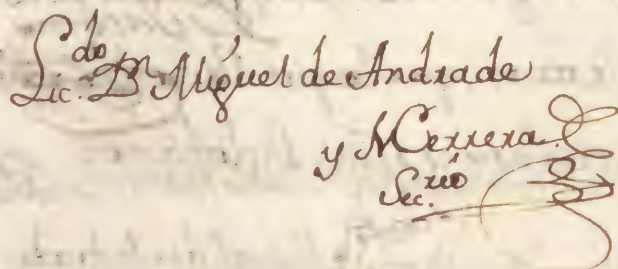 Lic.do Dn Miguel de Andrade
y Herrera
Sec.rio